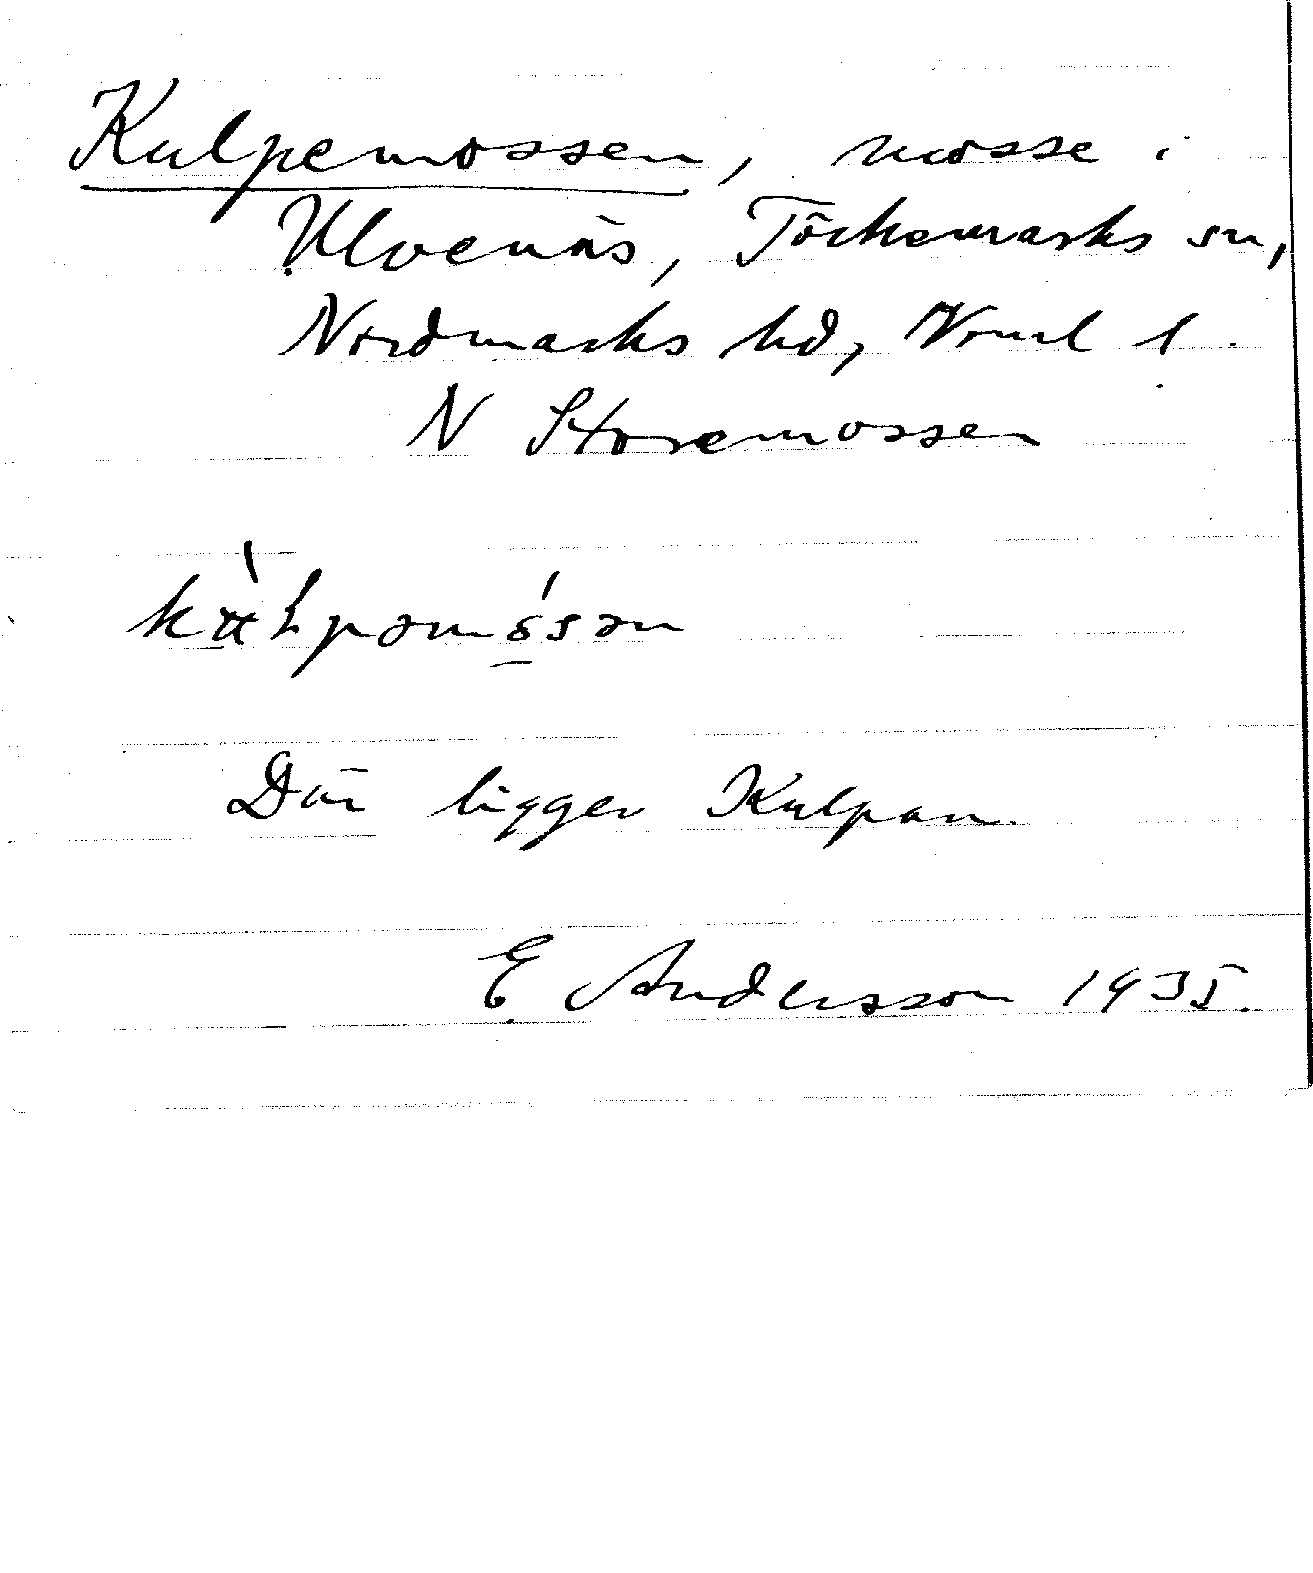 Kulpemossen, mosse i
Ulvenäs, Töcksmarks sn,
Nordmarks hd, Vrml l.
N Storemossen
Där ligger Kulpan.
E Andersson 1935.